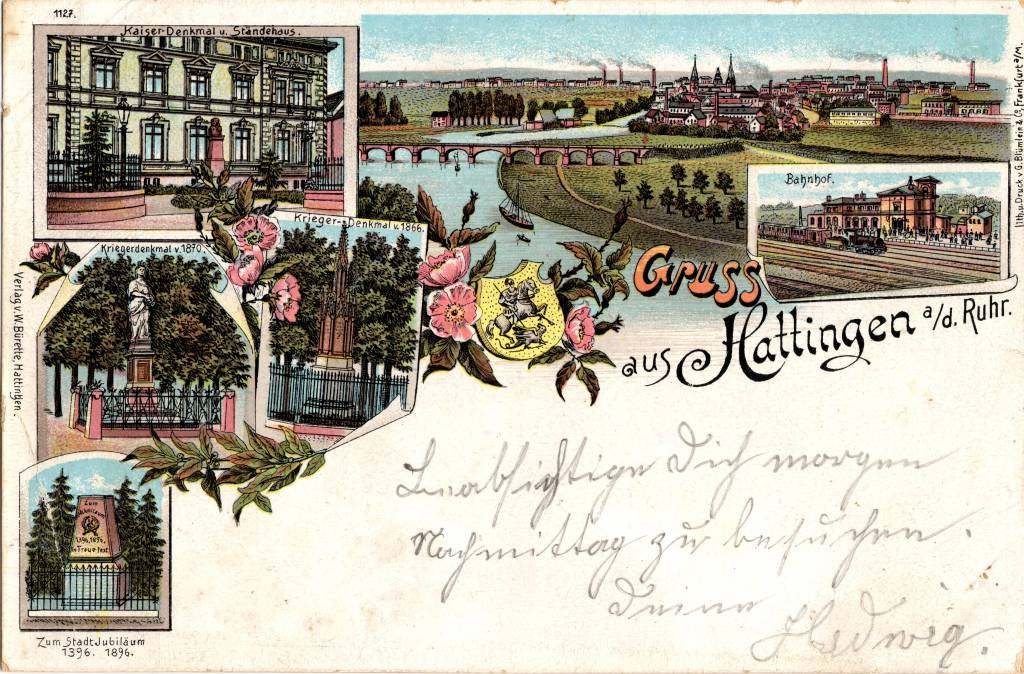 1127.
Kaiser-Denkmal u. Ständehaus.
Lith. u. Druck v. G. Blümlein & Co. Frankfurt a/M.
Bahnhof.
Krieger-Denkmal v. 1866.
Kriegerdenkmal v. 1870.
Gruss
aus Hattingen a/d. Ruhr.
Verlag v. W. Bürette, Hattingen.
Beabsichtige Dich morgen
Nachmittag zu besuchen.
Deine
Hedwig.
Zum
Jubiläum
1396. 1896.
In Treue fest
Zum StadtJubiläum
1396. 1896.